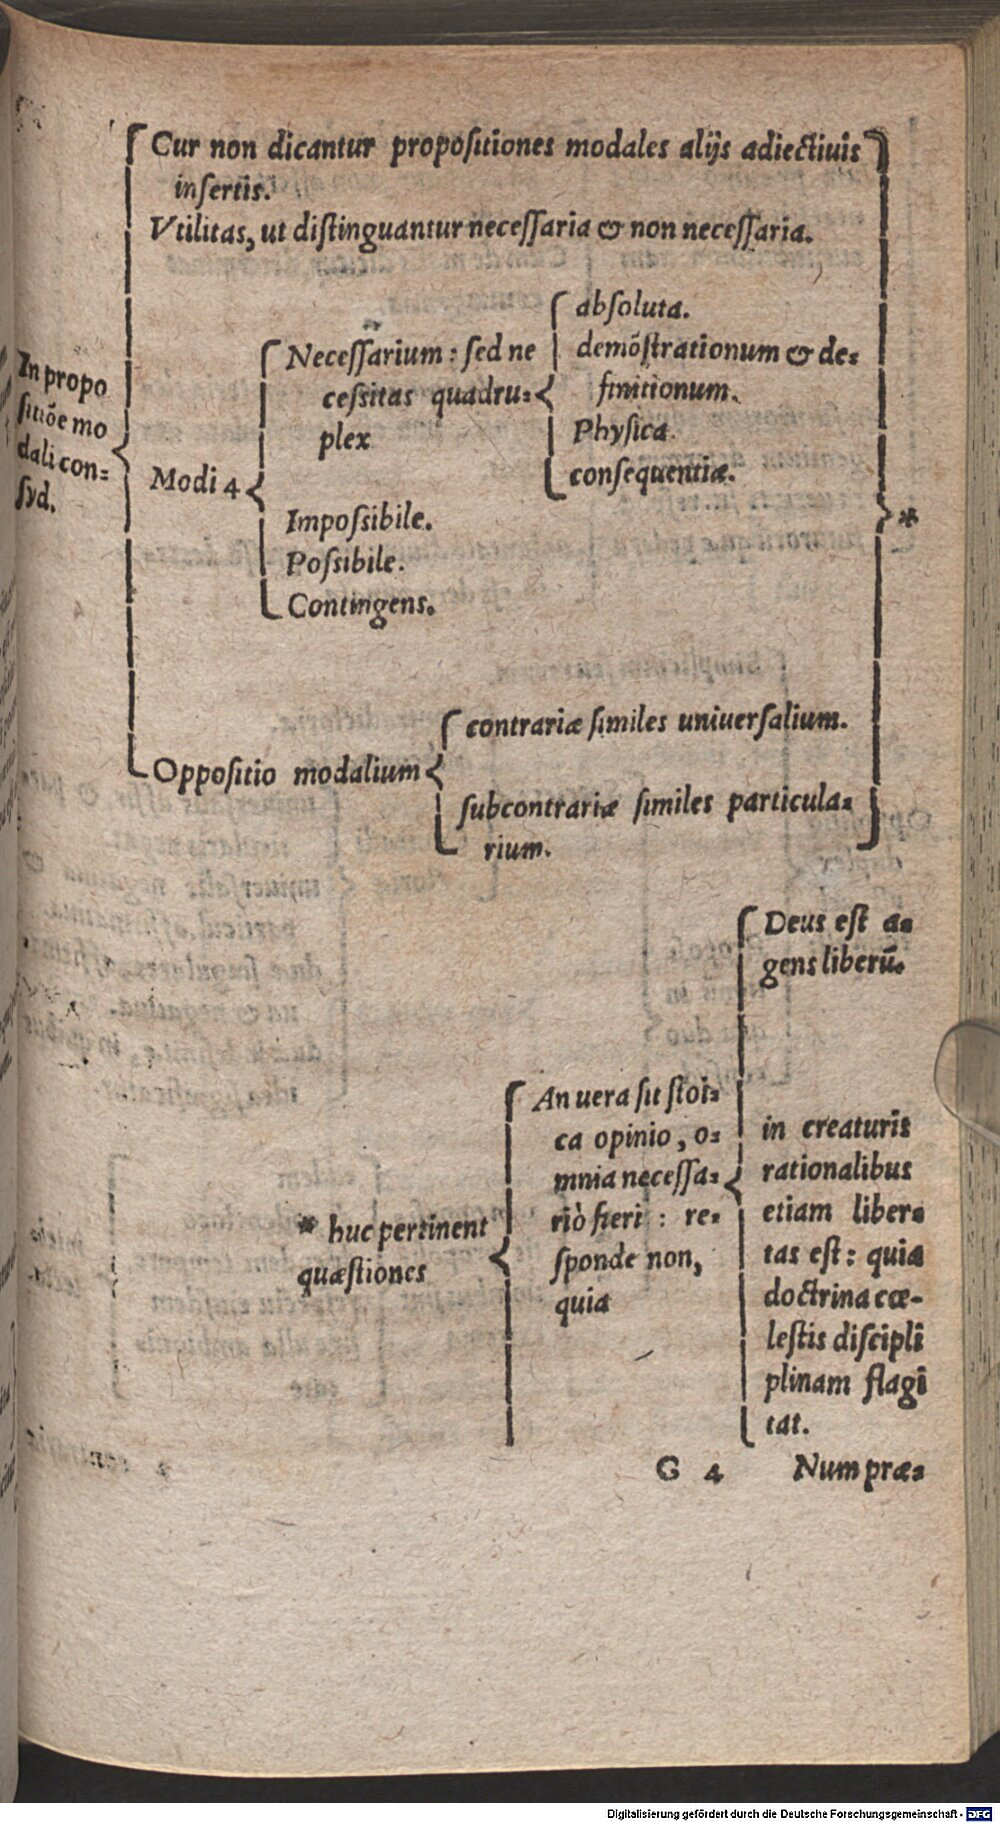 Cur non dicantur propositiones modales alijs adiectiuis
insertis.
Vtilitas, ut distinguantur necessaria & non necessaria.
In propo
sitiõe mo
dali con=
syd.
Modi 4
Necessarium: sed ne
cessitas quadru=
plex
absoluta.
demõstrationum & de=
finitionum.
Physica.
consequentiæ.
Impossibile.
Possibile.
Contingens.
*
Oppositio modalium
contrariæ similes uniuersalium.
subcontrariæ similes particula=
rium.
* huc pertinent
quæstiones
An uera sit stoi=
ca opinio, o=
mnia necessa=
riò fieri: re=
sponde non,
quia
Deus est a=
gens liberũ.
in creaturis
rationalibus
etiam liber=
tas est: quia
doctrina cœ-
lestis discipli
plinam flagi
tat.
G 4 Num præ=
Digitalisierung gefördert durch die Deutsche Forschungsgemeinschaft - DFG